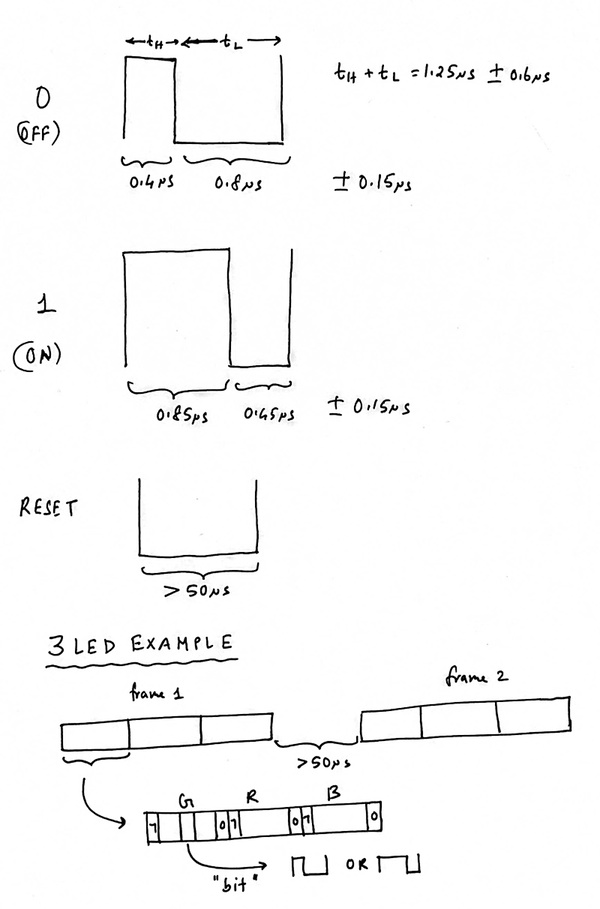 tH tL
tH + tL = 1.25μs ± 0.6μs
0
(OFF)
0.4μs 0.8μs ± 0.15μs
1
(ON)
0.85μs 0.45μs ± 0.15μs
RESET
> 50μs
3 LED EXAMPLE
frame 1 frame 2
>50μs
G R B
7 0 7 0 7 0
"bit" OR